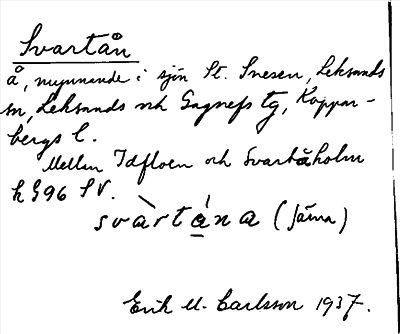 Svartån
å, mynnande i sjön St. Snesen, Leksands
sn, Leksands och Gagnefs tg, Koppar-
bergs l.
Mellan Idfloen och Svartåholm
k 396 SV.
svàrtána (Järna)
Erik M. Carlsson 1937.